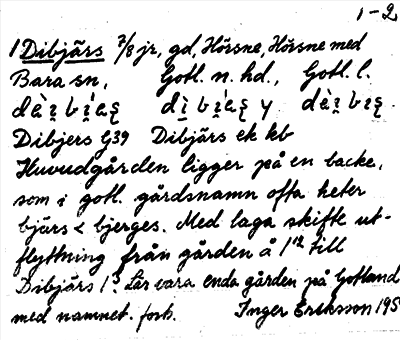 1-2
1 Dibjärs 7/8 jr, gd, Hörsne, Hörsne med
Bara sn, Gotl. n. hd., Gotl. l.
Dibjers G39 Dibjärs ek kb
Huvudgården ligger på en backe,
som i gotl. gårdsnamn ofta heter
bjärs < bjerges. Med laga skifte ut-
flyttning från gården å 1¹² till
Dibjärs 1³. Lär vara enda gården på Gotland
med namnet. forts. Inger Eriksson 195